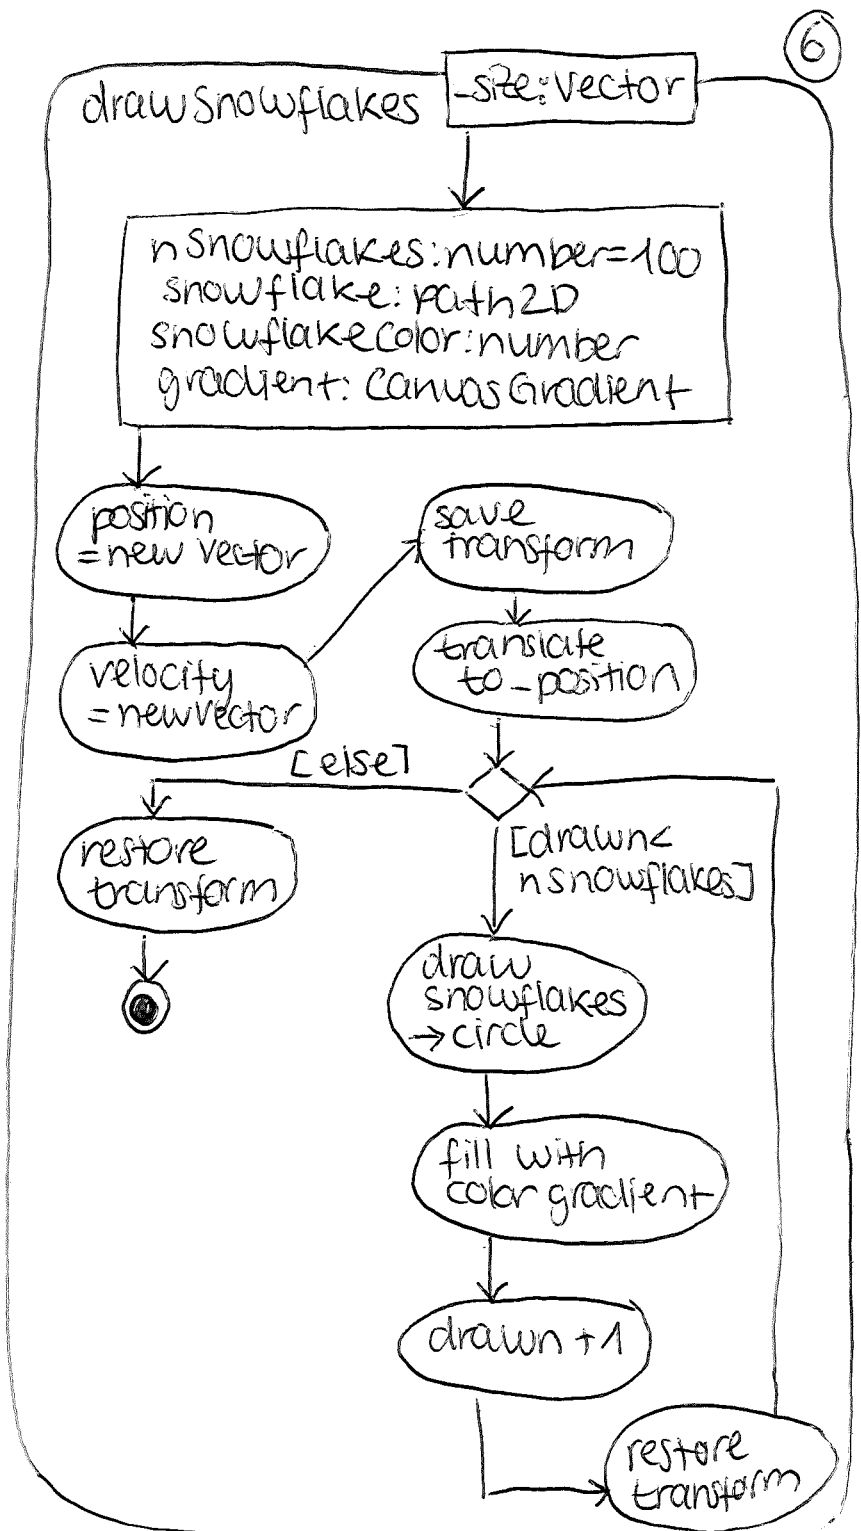 6
drawSnowflakes
_size: Vector
nSnowflakes: number = 100
snowflake: path2D
snowflakecolor: number
gradient: CanvasGradient
position
= new vector
save
transform
velocity
= new vector
translate
to _position
[else]
restore
transform
[drawn <
nsnowflakes]
draw
snowflakes
→ circle
fill with
color gradient
drawn + 1
restore
transform